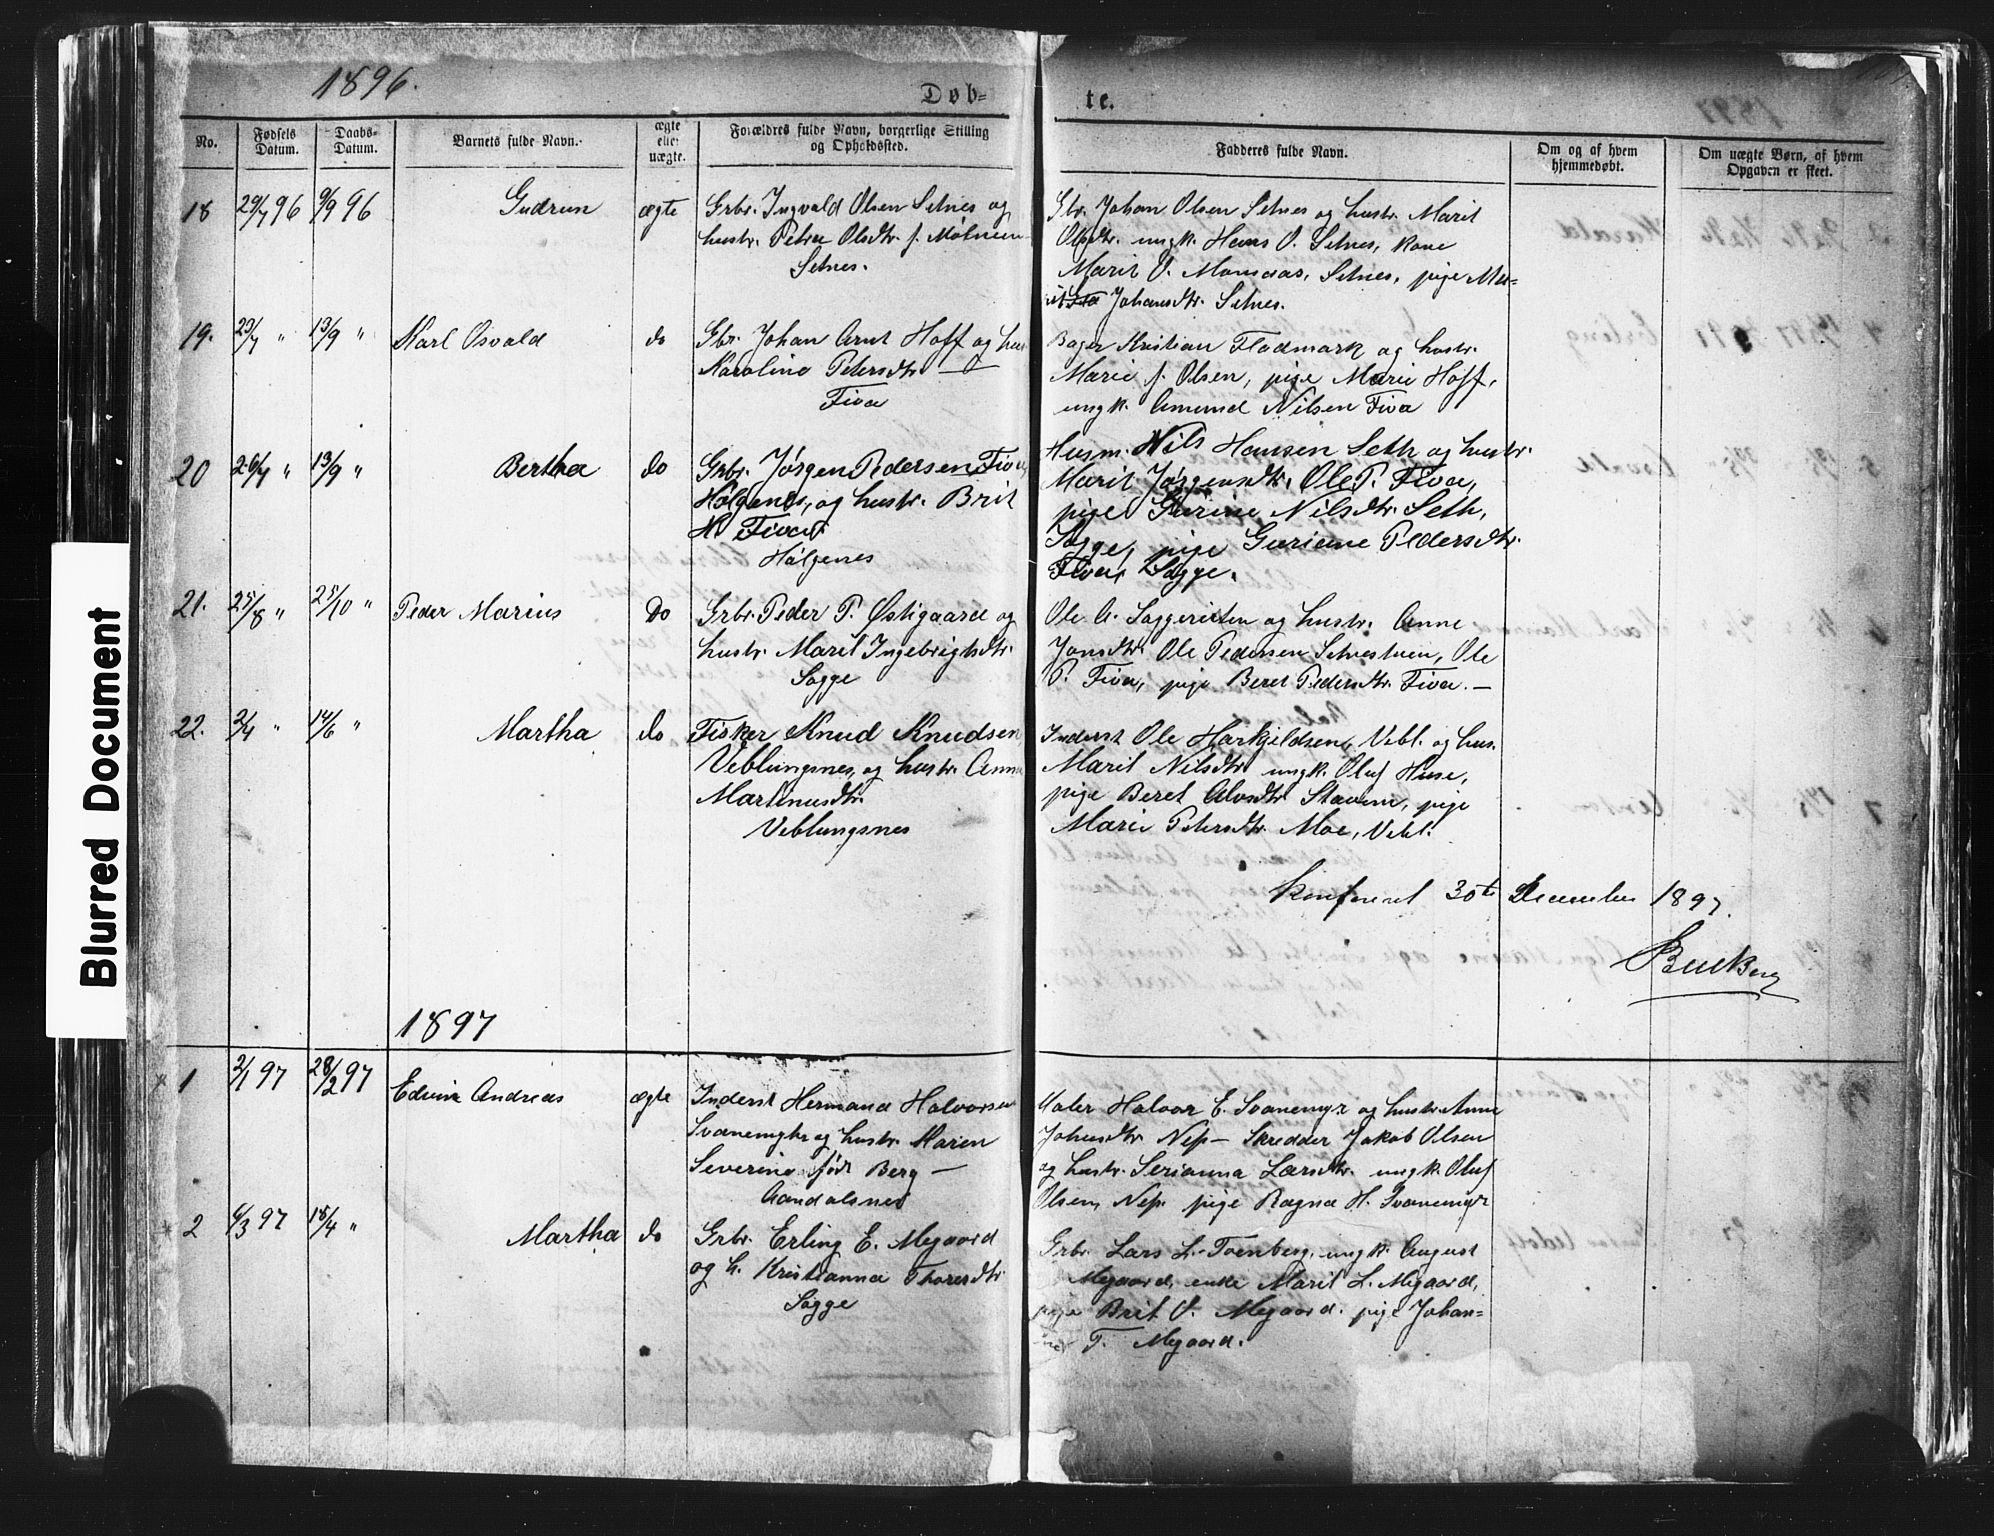 1896.
Døb-
te.
No.
Fødsels Datum.
Daabs- Datum.
Barnets fulde Navn.
ægte eller uægte.
Forældres fulde Navn, borgerlige Stilling og Opholdssted.
Fadderes fulde Navn.
Om og af hvem hjemmedøbt.
Om uægte Børn, af hvem Opgaven er skeet.
18 29/7 96 9/9 96 Gudrun ægte
Grbr. Ingvald Olsen Setnes og
hustr. Petra Olsdtr. f. Molneen
Setnes.
Gbr. Johan Olsen Setnes og hustr. Marit
Olsdtr. ungk. Hans O. Setnes, kone
Marit O. Monsaas, Setnes, pige Ma-
rit Johansdtr. Setnes.
19. 23/7 " 13/9 " Karl Osvald do
Gbr. Johan Arnt Hoff og hus
Karoline Petersdtr.
Fiva
Bager Kristian Flodmark og hustr.
Marie f. Olsen, pige Marie Hoff,
ungk. Amund Nilsen Fiva
20 26/7 " 13/9 " Bertha do
Grbr. Jørgen Pedersen Fiva
Holgenes, og hustr. Brit
Fiva
Holgenes
Husm. Nils Hansen Seth og hustr.
Marit Jørgensdtr. Ole P. Fiva,
pige Gurine Nilsdtr. Seth,
Sogge, pige Guriane Pedersdtr.
Fiva, Sogge.
21. 25/8 " 25/10 " Peder Marius Do
Grbr. Peder P. Østigaard og
hustr. Marit Ingebrigtsdtr.
Sogge
Ole A. Soggeristen og hustr. Anne
Jonsdtr. Ole Pedersen Setnestuen, Ole
P. Fiva, pige Beret Pedersdtr. Fiva. —
22. 2/4 " 14/6 " Martha do
Fisker Knud Knudsen
Veblungsnes, og hustr. Anna
Martinusdtr.
Veblungsnes
Inderst Ole Harkjeldsen, Vebl. og hus.
Marit Nilsdtr. ungk. Oluf Huse,
pige Beret Alvsdtr. Stavem, pige
Marie Petersdtr. Moe, Vebl.
Konfereret 30te December 1897.
1897
1 2/1 97 28/2 97 Edvin Andreas ægte
Inderst Hermand Halvorsen
Svanemyhr og hustr. Maren
Severine født Berg —
Aandalsnes
Maler Halvor E. Svanemyr og hustr. Anne
Johnsdtr. Nes — Skredder Jakob Olsen
og hustr. Serianna Larsdtr. ungk. Oluf
Olsen, Nes. pige Ragna H. Svanemyr
2 6/3 97 18/4 " Martha do
Grbr. Erling E. Mejaard
og h. Kristianna Thoresdtr.
Sogge
Grbr. Lars L. Torvberg, ungk. August
Mejaard, enke Marit L. Mejaard,
pige Brit O. Mejaard. pige Johan-
T. Mejaard.
Blurred Document